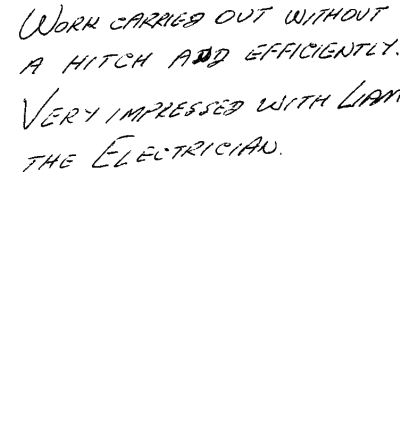 WORK CARRIED OUT WITHOUT
A HITCH AND EFFICIENTLY.
VERY IMPRESSED WITH LIAM
THE ELECTRICIAN.